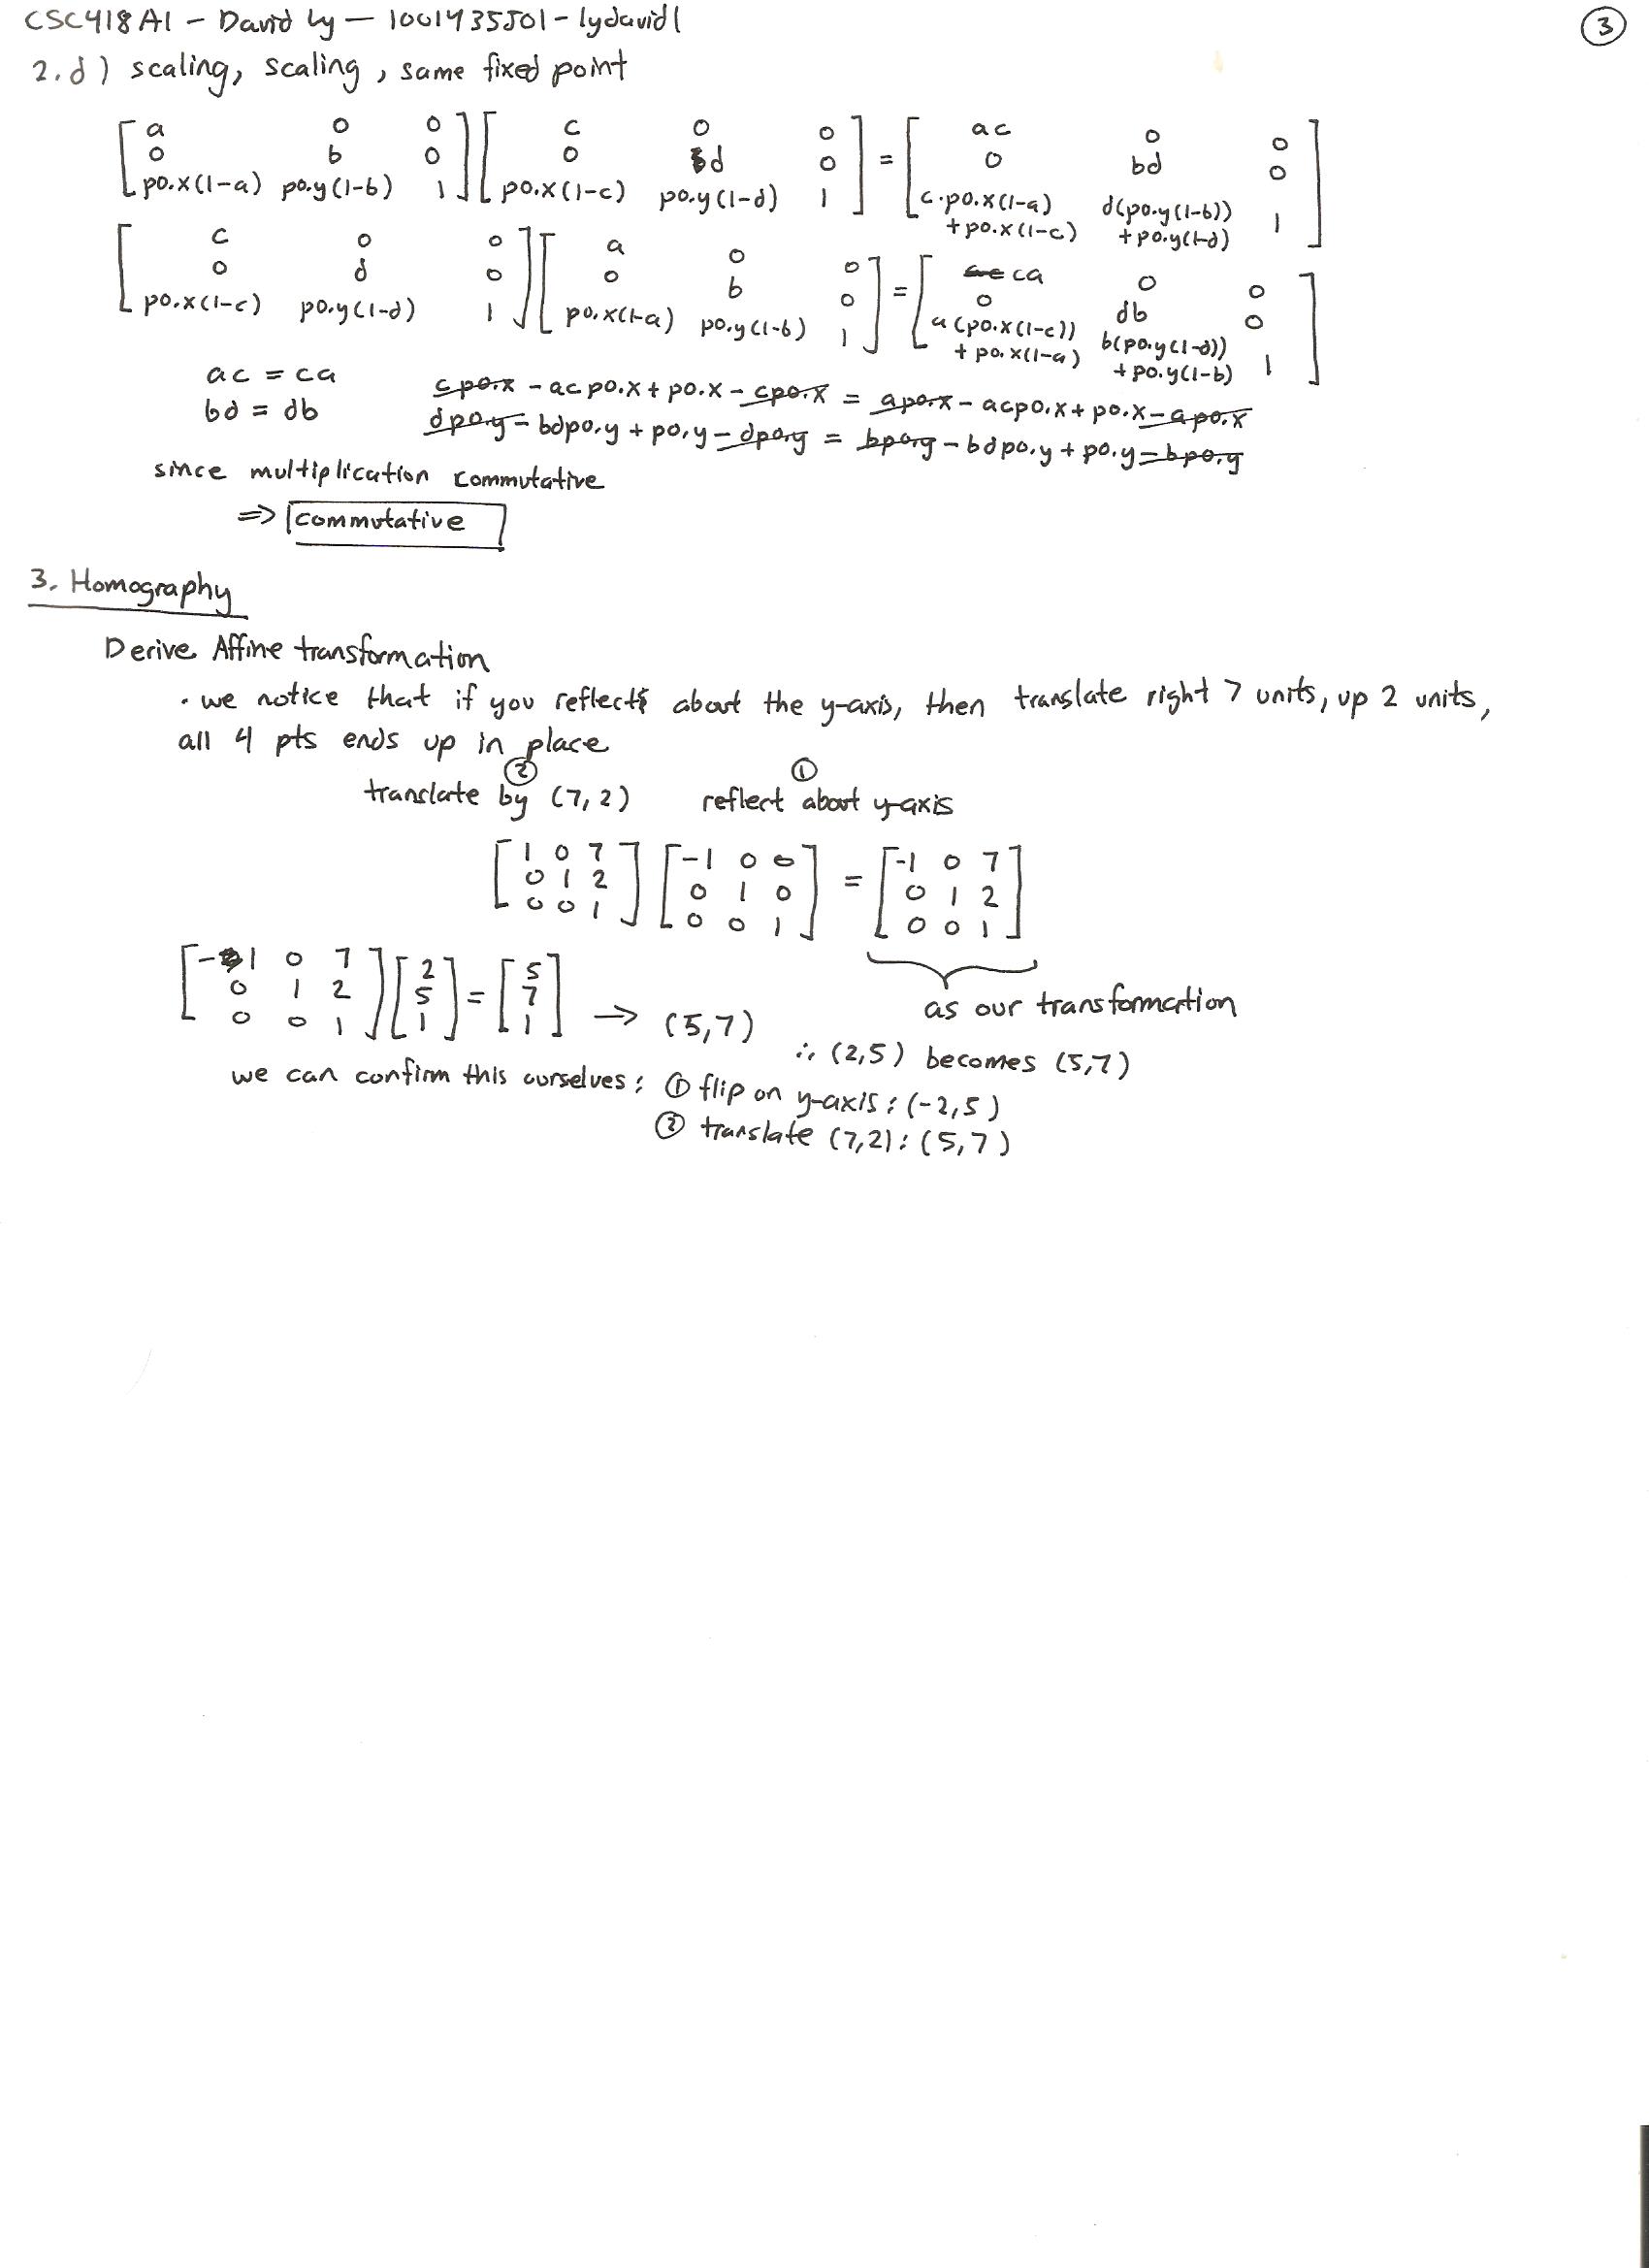 CSC418 A1 - David Ly - 1001435501 - lydavid1
③
2.d) scaling, scaling, same fixed point
[a 0 0] [c 0 0] = [ac 0 0]
[0 b 0] [0 d 0] [0 bd 0]
[p0.x(1-a) p0.y(1-b) 1] [p0.x(1-c) p0.y(1-d) 1] [c·p0.x(1-a) + p0.x(1-c) d(p0.y(1-b)) + p0.y(1-d) 1]
[c 0 0] [a 0 0] = [ca 0 0]
[0 d 0] [0 b 0] [0 db 0]
[p0.x(1-c) p0.y(1-d) 1] [p0.x(1-a) p0.y(1-b) 1] [a(p0.x(1-c)) + p0.x(1-a) b(p0.y(1-d)) + p0.y(1-b) 1]
ac = ca
bd = db
cp0.x - acp0.x + p0.x - cp0.x = ap0.x - acp0.x + p0.x - ap0.x
dp0.y - bdp0.y + p0.y - dp0.y = bp0.y - bdp0.y + p0.y - bp0.y
since multiplication commutative
⇒ commutative
3. Homography
Derive Affine transformation
· we notice that if you reflect about the y-axis, then translate right 7 units, up 2 units,
all 4 pts ends up in place
② ①
translate by (7,2) reflect about y-axis
[1 0 7] [-1 0 0] = [-1 0 7]
[0 1 2] [0 1 0] [0 1 2]
[0 0 1] [0 0 1] [0 0 1]
as our transformation
[-1 0 7] [2] = [5]
[0 1 2] [5] [7]
[0 0 1] [1] [1]
→ (5,7)
∴ (2,5) becomes (5,7)
we can confirm this ourselves: ① flip on y-axis: (-2,5)
② translate (7,2): (5,7)